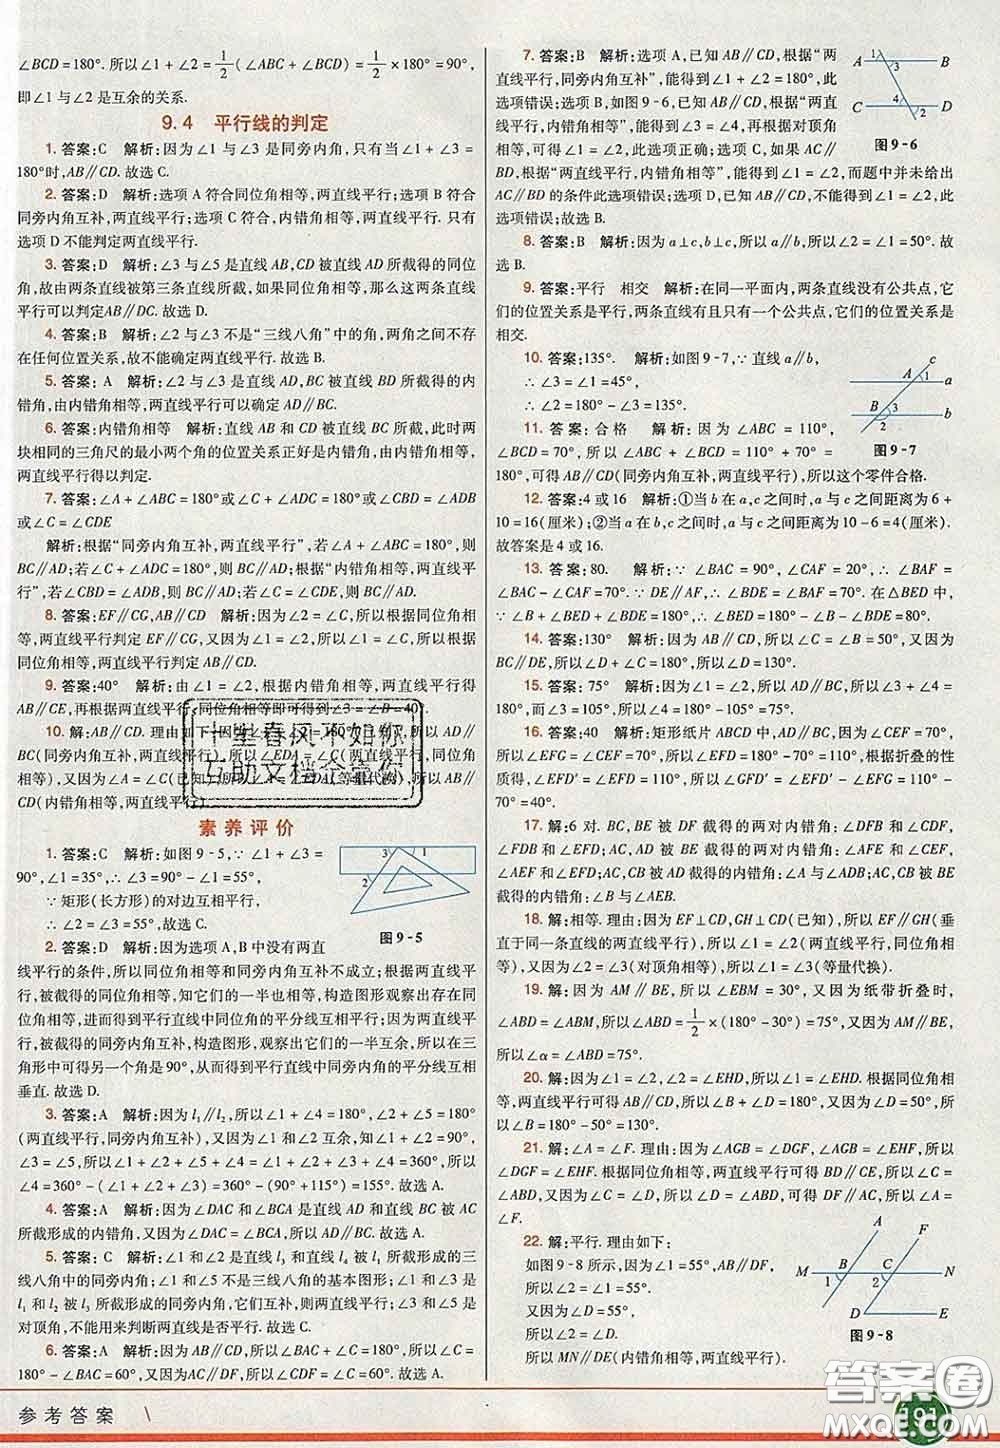 ∠BCD=180°. 所以∠1+∠2=1/2(∠ABC+∠BCD)=1/2×180°=90°,
即∠1与∠2是互余的关系.
9.4 平行线的判定
1. 答案:C 解析:因为∠1与∠3是同旁内角,只有当∠1+∠3=
180°时,AB∥CD. 故选C.
2. 答案:D 解析:选项A符合同位角相等,两直线平行;选项B符合
同旁内角互补,两直线平行;选项C符合,内错角相等,两直线平行. 只有
选项D不能判定两直线平行.
3. 答案:D 解析:∠3与∠5是直线AB,CD被直线AD所截得的同位
角,故由两条直线被第三条直线所截得的同位角相等,那么这两条直线
平行可以判定AB∥DC. 故选D.
4. 答案:B 解析:∠2与∠3不是“三线八角”中的角,两角之间不存
在任何位置关系,故不能确定两直线平行. 故选B.
5. 答案:A 解析:∠2与∠3是直线AD,BC被直线BD所截得的内
错角,由内错角相等,两直线平行可以确定AD∥BC.
6. 答案:内错角相等 解析:直线AB和CD被直线BC所截,此时两
块相同的三角尺的最小两个角的位置关系正好是内错角,由内错角相等,
两直线平行得以判定.
7. 答案:∠A+∠ABC=180°或∠C+∠ADC=180°或∠CBD=∠ADB
或∠C=∠CDE
解析:根据“同旁内角互补,两直线平行”,若∠A+∠ABC=180°,则
BC∥AD;若∠C+∠ADC=180°,则BC∥AD;根据“内错角相等,两直线平
行”,若∠CBD=∠ADB,则BC∥AD;若∠C=∠CDE,则BC∥AD.
8. 答案:EF∥CG,AB∥CD 解析:因为∠2=∠1,所以根据同位角相
等,两直线平行判定EF∥CG,又因为∠1=∠A,所以∠A=∠C,所以根据
同位角相等,两直线平行判定AB∥CD.
9. 答案:40° 解析:由∠1=∠2,根据内错角相等,两直线平行得
AB∥CE,再根据两直线平行,同位角相等即可得到∠3=∠B=40°.
10. 解:AB∥CD. 理由如下:因为
AD∥BC(同旁内角互补,两直线平行),所以∠EDA
等),又因为
CD(内错角相等,两直线平行)
十里春风不如你
互助文档
素养评价
1. 答案:C 解析:如图9-5,∵∠1+∠3=
90°,∠1=35°,∴∠3=90°-∠1=55°.
∵矩形(长方形)的对边互相平行,
∴∠2=∠3=55°,故选C.
图9-5
2. 答案:D 解析:因为选项A,B中没有两直
线平行的条件,所以同位角相等和同旁内角互补不成立;根据两直线平
行,被截得的同位角相等,知它们的一半也相等,构造图形观察出存在同
位角相等,进而得到平行直线中同位角的平分线互相平行;因为两直线
平行,被截得的同旁内角互补,构造图形,观察出它们的一半的和,在三
角形中可得另一个角是90°,从而得到平行直线中同旁内角的平分线互相
垂直. 故选D.
3. 答案:A 解析:因为l₁∥l₂,所以∠1+∠4=180°,∠2+∠5=180°
(两直线平行,同旁内角互补),又因为∠1和∠2互余,知∠1+∠2=90°,
∠3=360°-(∠1+∠2+∠3)=360°-(90°+115°)=155°. 故选A.
4. 答案:A 解析:因为∠DAC和∠BCA是直线AD和直线BC被AC
所截形成的内错角,又因为∠DAC=∠BCA,所以AD∥BC. 故选A.
5. 答案:C 解析:∠1和∠2是直线l₃和直线l₄被l₁所截形成的三
线八角中的同旁内角;∠2和∠5不是三线八角的基本图形;∠2和∠3是
l₁和l₂被l₃所截形成的同旁内角,它们互补,则两直线平行;∠3和∠5是
对顶角,不能用来判断两直线是否平行. 故选C.
6. 答案:A 解析:因为AB∥CD,所以∠BAC+∠ACD=180°,
180°-∠BAC=180°-120°=60°. 故选A.
7. 答案:B 解析:选项A,已知AB∥CD,根据“两
直线平行,同旁内角互补”,能得到∠1+∠2=180°,此
选项错误;选项B,如图9-6,已知AB∥CD,根据“两直
线平行,内错角相等”,能得到∠3=∠4,再根据对顶角
相等,能得到∠1=∠2,此选项正确;选项C,如果AC∥
BD,根据“两直线平行,内错角相等”,能得到∠1=∠2,而题中并未给出
AC∥BD的条件此选项错误;选项D,已知AB∥CD,不能得到∠1=∠2,此
选项错误;故选B.
图9-6
8. 答案:B 解析:因为a⊥c,b⊥c,所以a∥b,所以∠2=∠1=50°. 故
选B.
9. 答案:平行 相交 解析:在同一平面内,两条直线没有公共点,它
们的位置关系是平行,两条直线有且只有一个公共点,它们的位置关系是
相交.
10. 答案:135°. 解析:如图9-7,∵直线a∥b,
∴∠3=∠1=45°,
∴∠2=180°-∠3=135°.
图9-7
11. 答案:合格 解析:因为∠ABC=110°,
∠BCD=70°,所以∠ABC+∠BCD=110°+70°=
180°,可得AB∥CD(同旁内角互补,两直线平行),所以这个零件合格.
12. 答案:4或16 解析:①当b在a,c之间时,a与c之间距离为6+
10=16(厘米);②当a在b,c之间时,a与c之间距离为10-6=4(厘米).
故答案是4或16.
13. 答案:80. 解析:∵∠BAC=90°,∠CAF=20°,∴∠BAF=
∠BAC-∠CAF=70°. ∵DE∥AF,∴∠BDE=∠BAF=70°. 在△BED中,
∵∠B+∠BDE+∠BED=180°,∴∠BED=180°-∠B-∠BDE=80°.
14. 答案:130° 解析:因为AB∥CD,所以∠C=∠B=50°,又因为
BC∥DE,所以∠D+∠C=180°,所以∠D=130°.
15. 答案:75° 解析:因为∠1=∠2,所以a∥b,所以∠3+∠4=
180°,而∠3=105°,所以∠4=180°-105°=75°.
16. 答案:40 解析:矩形纸片ABCD中,AD∥BC,∵∠CEFG=70°,
∴∠EFG=∠CEFG=70°,∴∠EFD=180°-70°=110°,根据折叠的性
质得,∠EFD′=∠EFD=110°,∴∠GFD′=∠EFD′-∠EFG=110°
-70°=40°.
17. 解:6对. BC,BE被DF截得的两对内错角:∠DFB和∠CDF,
∠FDB和∠EFD;AC,DF被BE截得的两对内错角:∠AFE和∠CEF,
∠AEF和∠EFD;AC,BC被AD截得的内错角:∠DAC和∠ADB;AC,BC被BE
截得的内错角:∠B与∠AEB.
18. 解:相等. 理由:因为EF⊥CD,GH⊥CD(已知),所以EF∥GH(垂
直于同一条直线的两直线平行),所以∠1=∠2(两直线平行,同位角相
等). 因为∠2=∠3(对顶角相等),所以∠1=∠3(等量代换).
19. 解:因为AM∥BE,所以∠EBM=30°,又因为纸带折叠时,
∠ABD=∠ABM,所以∠ABD=1/2×(180°-30°)=75°,又因为AM∥BE,
所以∠α=∠ABD=75°.
20. 解:因为∠1=∠2,∠2=∠EHD,所以∠1=∠EHD. 根据同位角相
等,两直线平行得AB∥CD,所以∠B+∠D=180°,又因为∠D=50°,所
以∠B=180°-50°=130°.
21. 解:∠A=∠F. 理由:因为∠AGB=∠DGF,∠AGB=∠EHF,所以
∠DGF=∠EHF. 根据同位角相等,两直线平行可得BD∥CE,所以∠C=
∠ABD,又因为∠C=∠D,所以∠D=∠ABD,可得DF∥AC,所以∠A=
∠F.
22. 解:平行. 理由如下:
如图9-8所示,因为∠1=55°,
∠2=55°,所以AB∥DF,
又因为∠D=55°,
所以∠2=∠D=55°,
所以MN∥DE(内错角相等,两直线平行).
图9-8
参考答案
191
答案圈
MXQE.COM